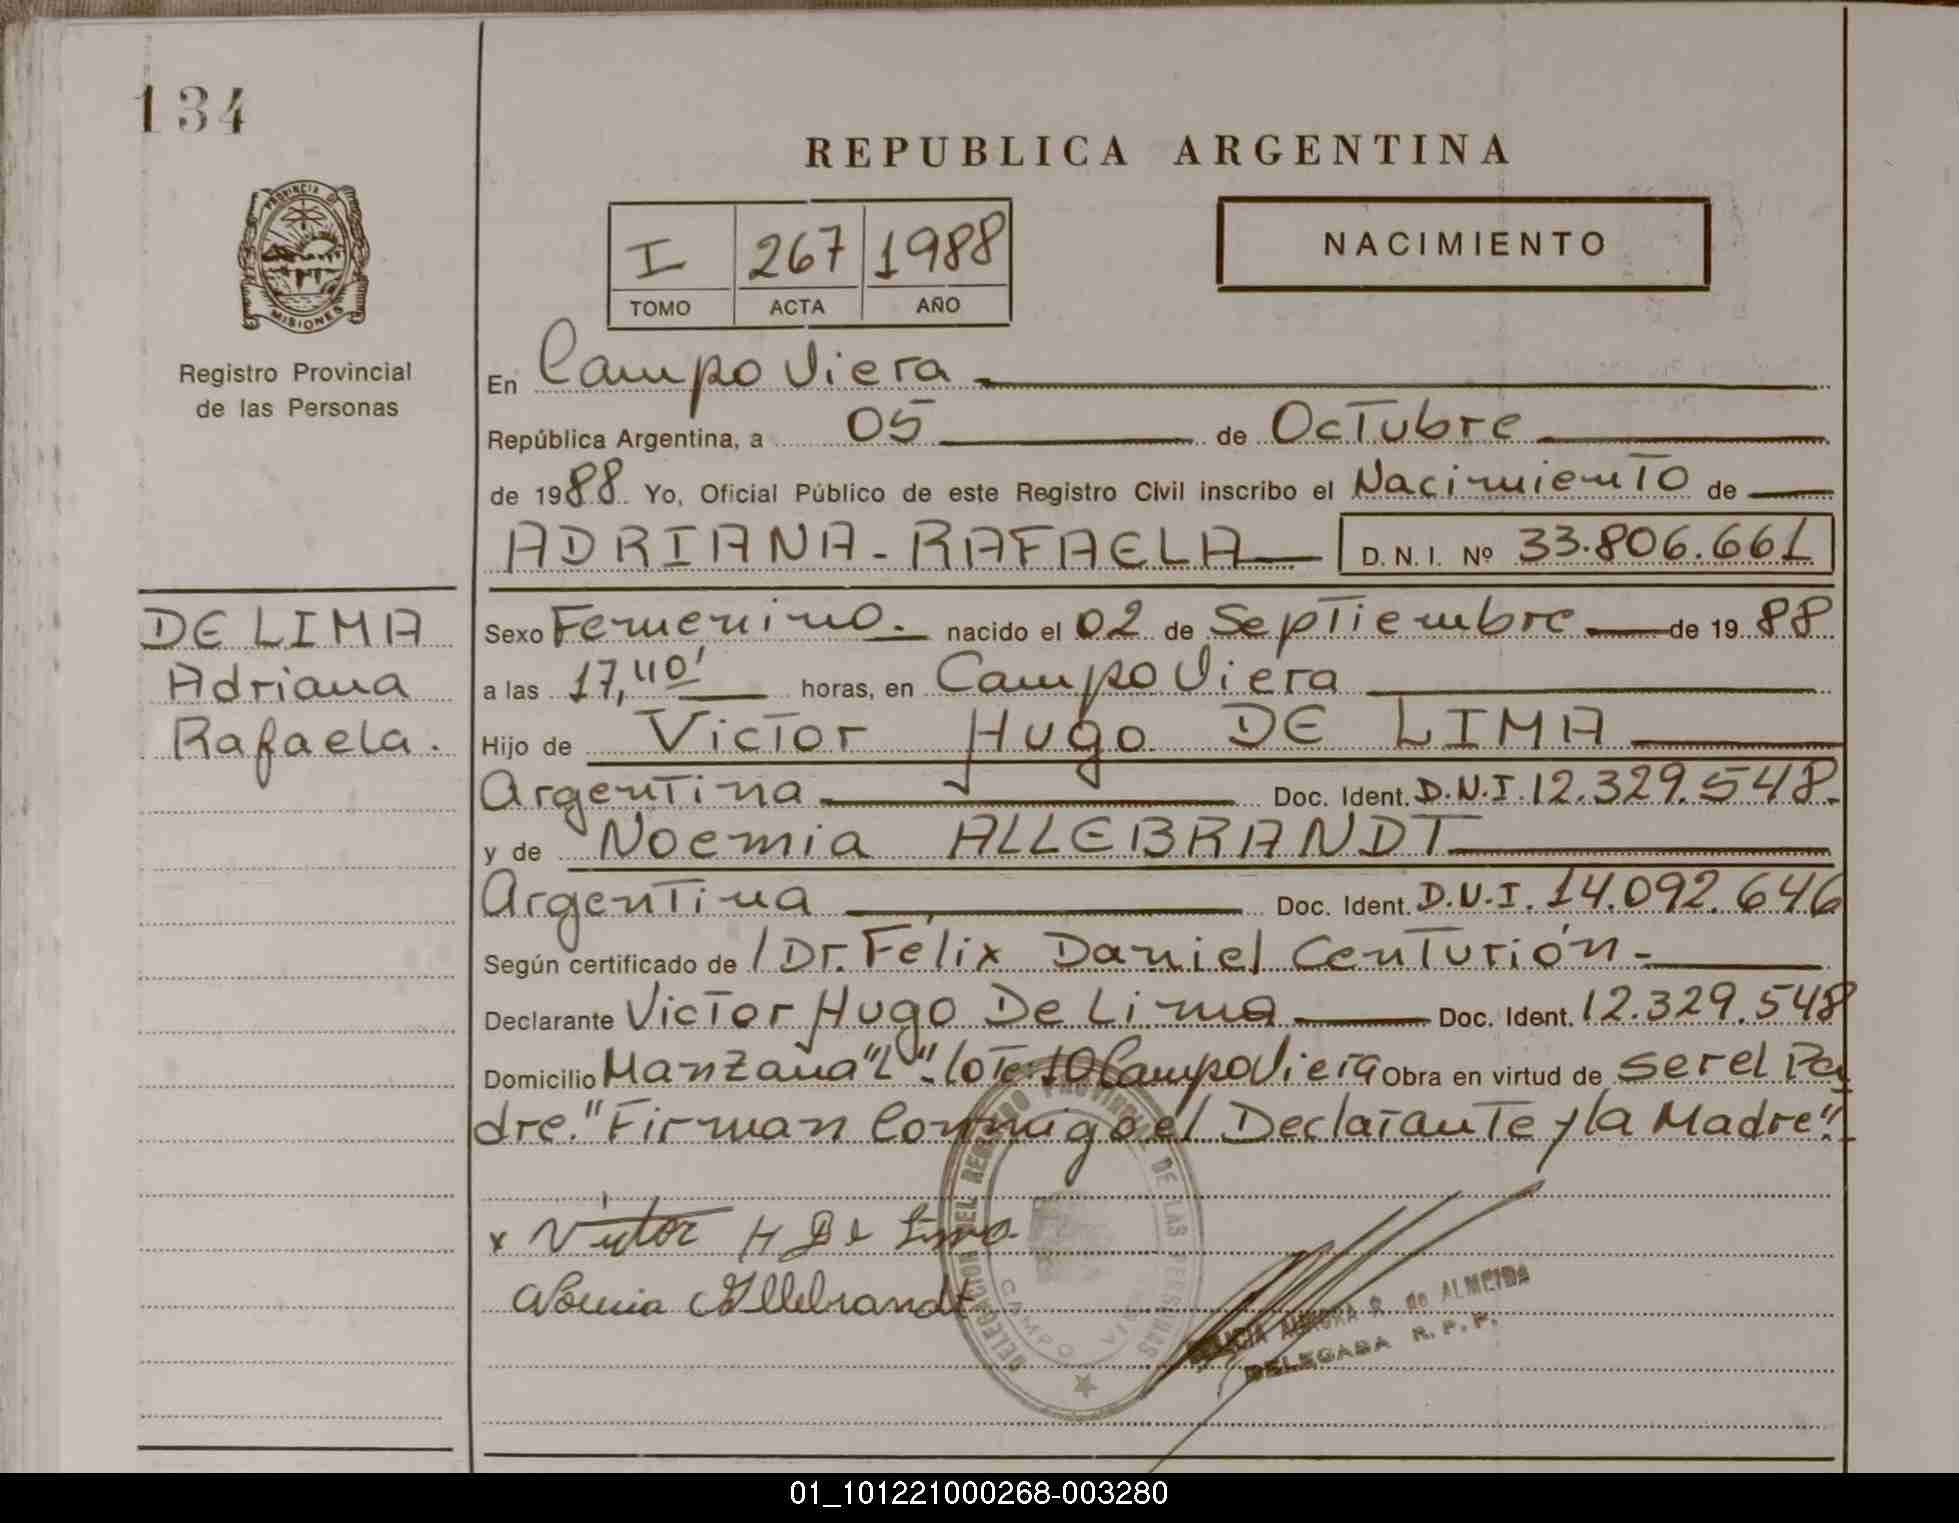 134
REPUBLICA ARGENTINA
PROVINCIA D
MISIONES
Registro Provincial
de las Personas
I 267 1988
TOMO ACTA AÑO
NACIMIENTO
En Campo Viera
República Argentina, a 05 de Octubre
de 1988 Yo, Oficial Público de este Registro Civil inscribo el Nacimiento de
ADRIANA - RAFAELA D.N.I. Nº 33.806.661
DE LIMA
Adriana
Rafaela.
Sexo Femenino. nacido el 02 de Septiembre de 1988
a las 17,40' horas, en Campo Viera
Hijo de Victor Hugo DE LIMA
Argentina Doc. Ident. D.N.I. 12.329.548.
y de Noemia ALLEBRANDT
Argentina Doc. Ident. D.N.I. 14.092.646
Según certificado de / Dr. Félix Daniel Centurión -
Declarante Victor Hugo De Lima Doc. Ident. 12.329.548
Domicilio Manzana "L". lote: 10 Campo Viera Obra en virtud de ser el Pa
dre. "Firman Conmigo el Declarante y la Madre".
x Victor H De Lima
Noemia Allebrandt
DELEGACION DEL REGISTRO PROVINCIAL DE LAS PERSONAS
CAMPO VIERA
AURORA de ALMEIDA
DELEGADA R.P.P.
01_101221000268-003280